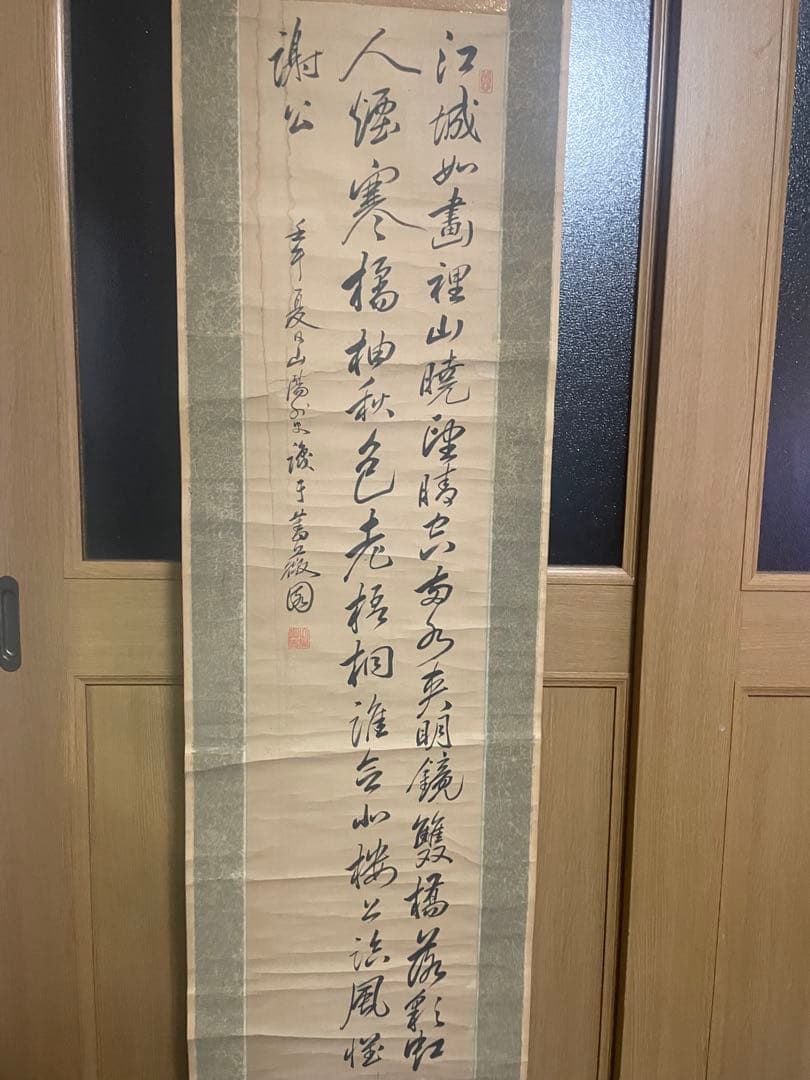 江城如畫裡山曉望晴空兩水夾明鏡雙橋落彩虹
人煙寒橘柚秋色老梧桐誰念北樓上臨風懷
謝公
壬午夏日山陽外史 于薔薇園